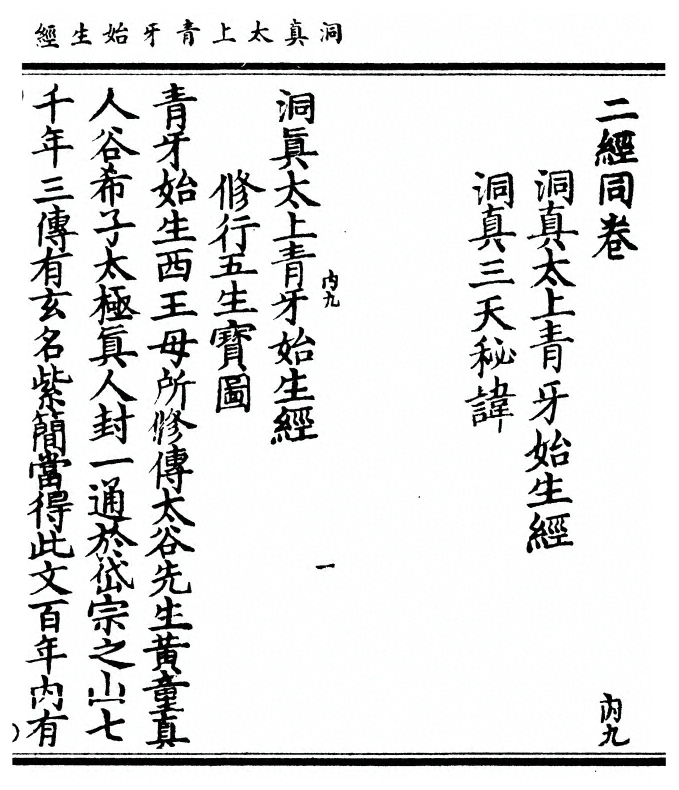 洞真太上青牙始生經
二經同卷
內九
洞真太上青牙始生經
洞真三天秘諱
內九
一
洞眞太上青牙始生經
修行五生寶圖
青牙始生西王母所修傳太谷先生黃童真
人谷希子太極眞人封一通於岱宗之山七
千年三傳有玄名紫簡當得此文百年內有